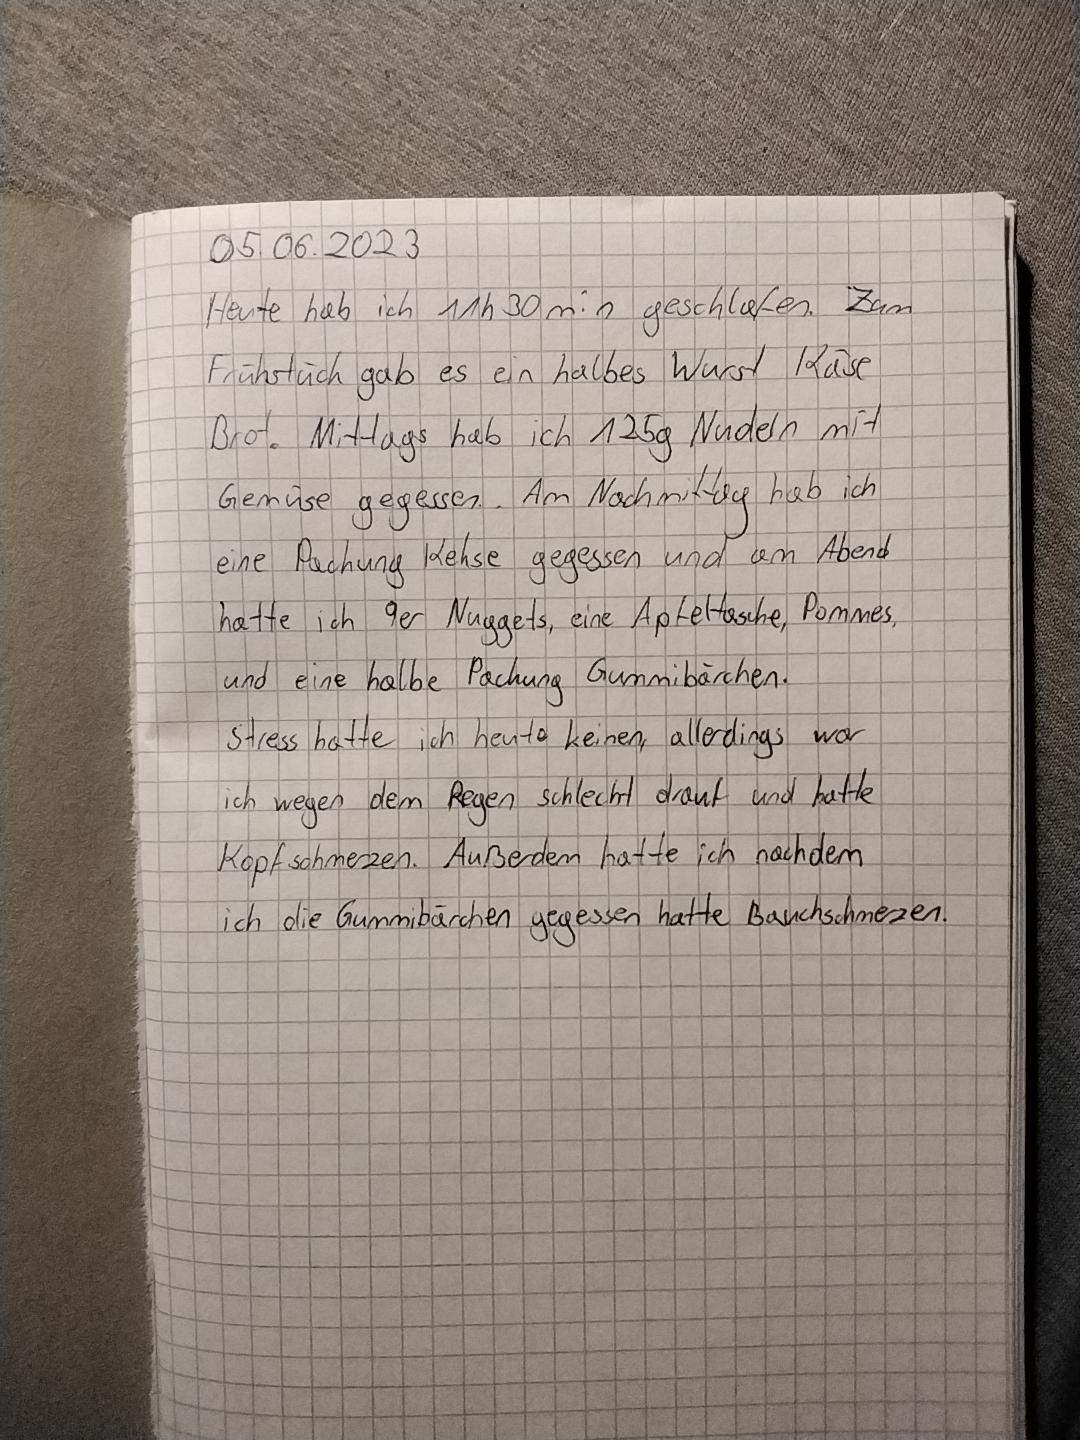 05.06.2023
Heute hab ich 11h 30 min geschlafen. Zum
Frühstück gab es ein halbes Wurst Käse
Brot. Mittags hab ich 125g Nudeln mit
Gemüse gegessen. Am Nachmittag hab ich
eine Packung Kekse gegessen und am Abend
hatte ich 9er Nuggets, eine Apfeltasche, Pommes,
und eine halbe Packung Gummibärchen.
Stress hatte ich heute keinen, allerdings war
ich wegen dem Regen schlecht drauf und hatte
Kopfschmerzen. Außerdem hatte ich nachdem
ich die Gummibärchen gegessen hatte Bauchschmerzen.